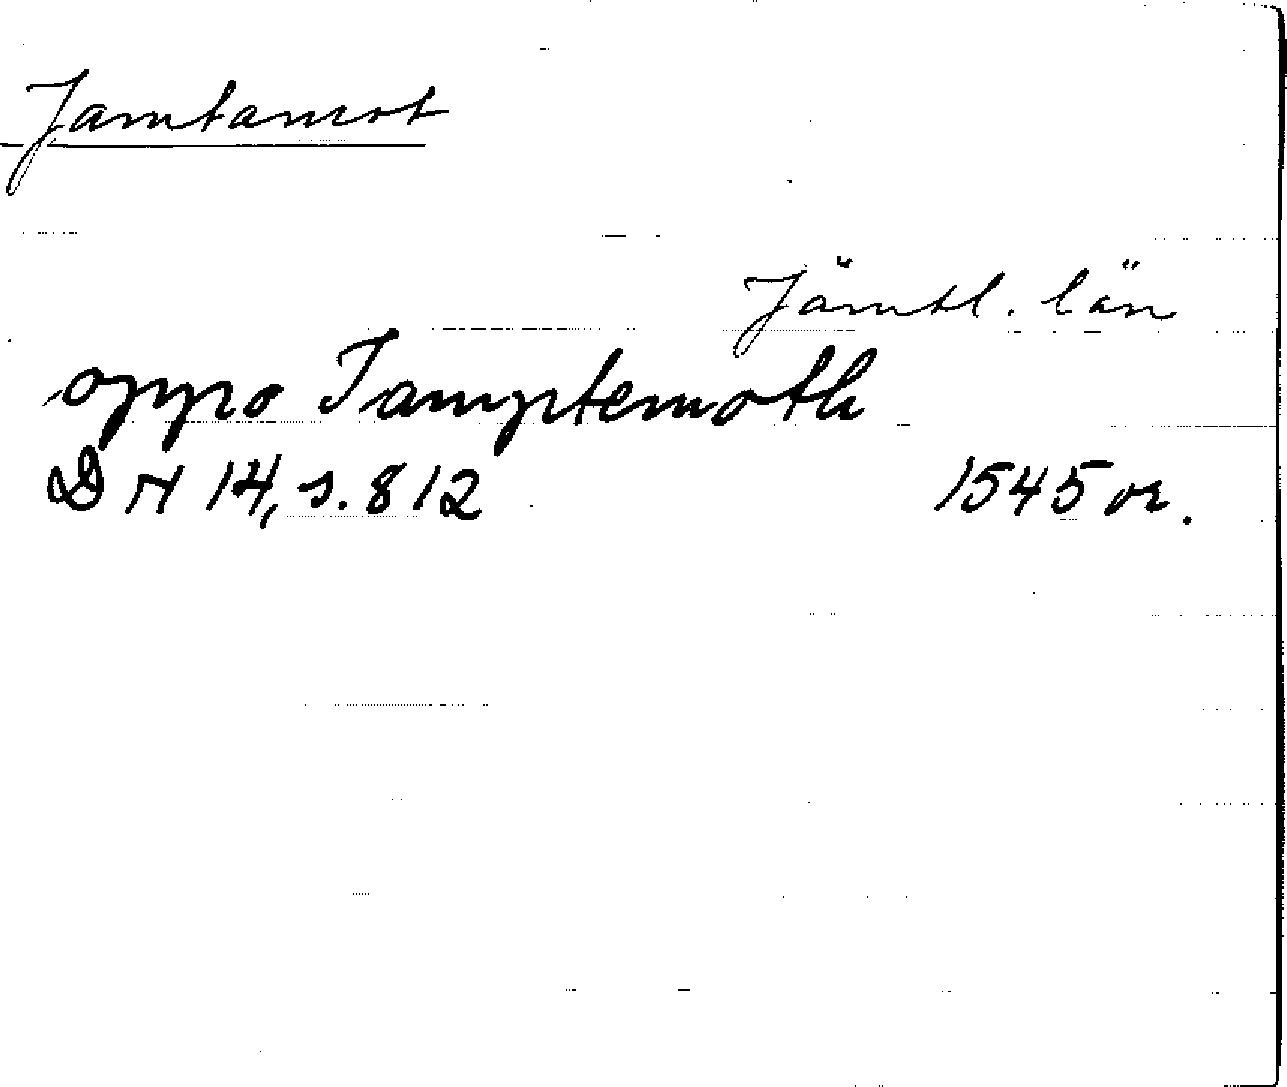 Jamtamot
Jämtl. län
oppo Jamptemoth
DN 14, s. 812 1545 or.